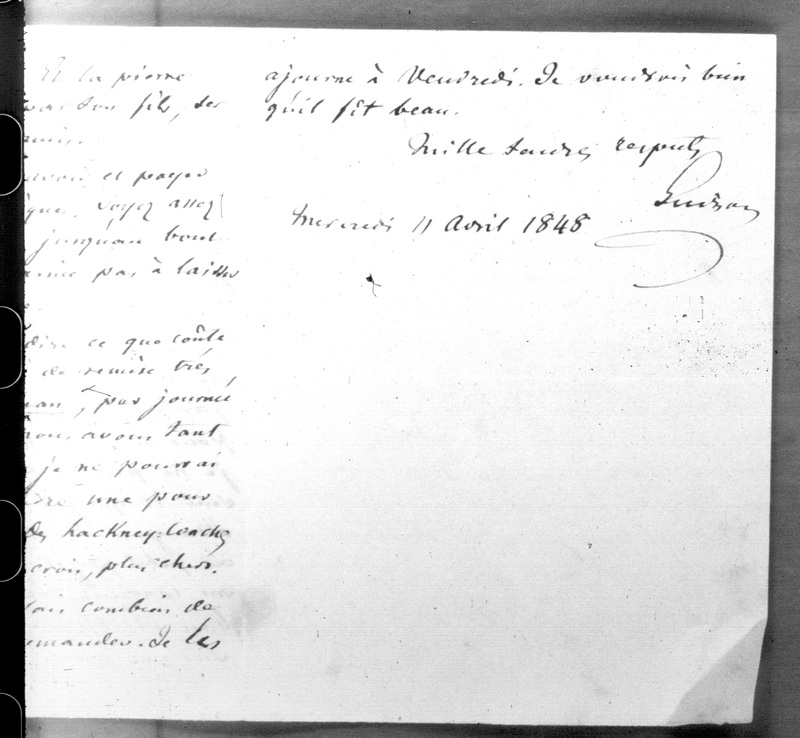 Et la pierre
ton fils, ser

avoir et payer
que. Soyez assez
jusqu'au bout
pas à laisser
dire ce que coûte
de remise très
, par journée
nous avons tant
je ne pourrai
une pour
des hackney-coaches
crois, plus chers.
combien de
demander. Je les
ajourne à Vendredi. Je voudrois bien
qu'il fît beau.
Mille tendres respects
Guizon
Mercredi 11 Avril 1848